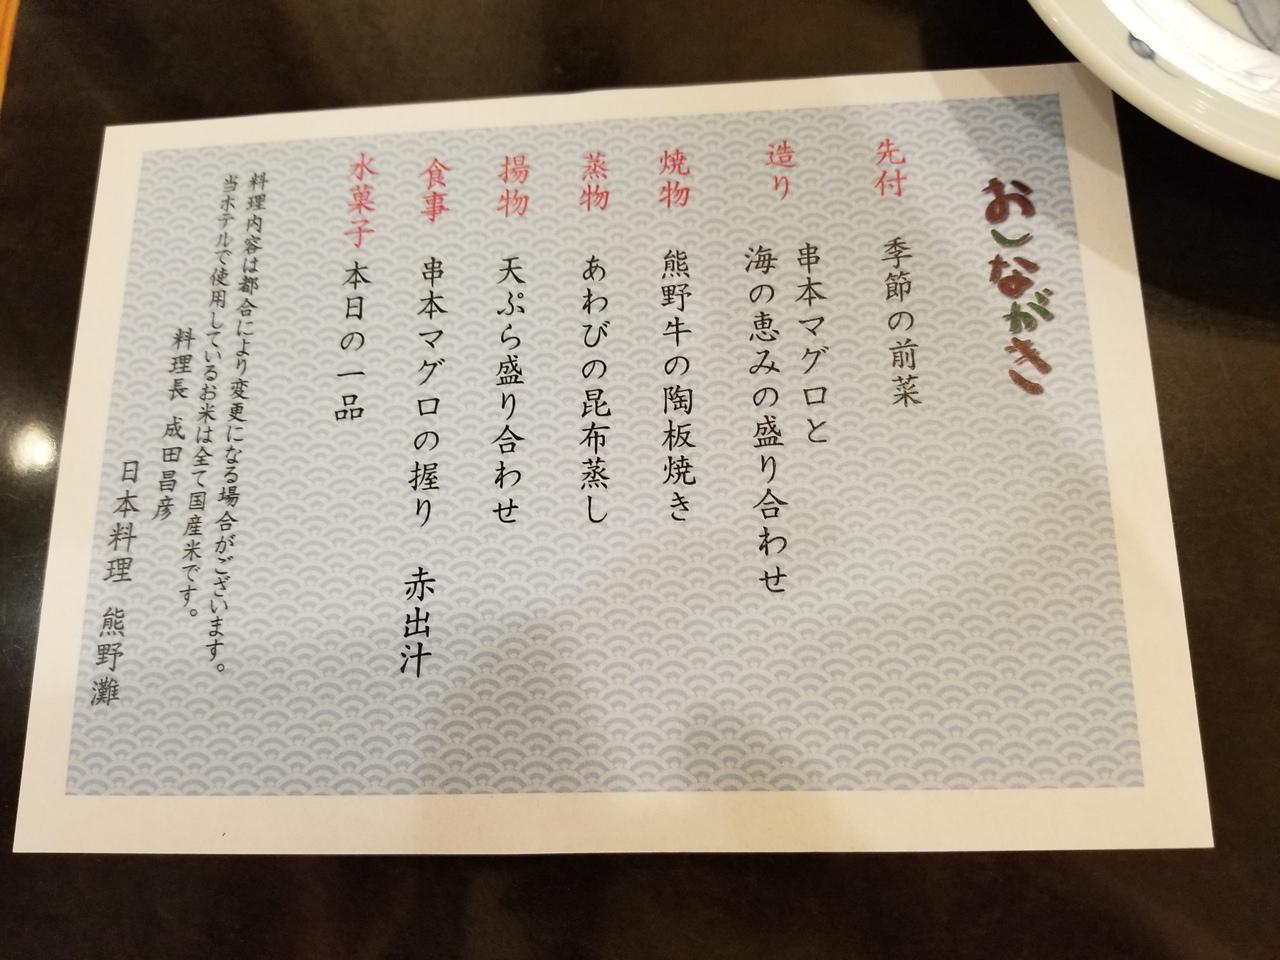 おしながき
先付 季節の前菜
造り 串本マグロと
海の恵みの盛り合わせ
焼物 熊野牛の陶板焼き
蒸物 あわびの昆布蒸し
揚物 天ぷら盛り合わせ
食事 串本マグロの握り 赤出汁
水菓子 本日の一品
料理内容は都合により変更になる場合がございます。
当ホテルで使用しているお米は全て国産米です。
料理長 成田昌彦
日本料理 熊野灘